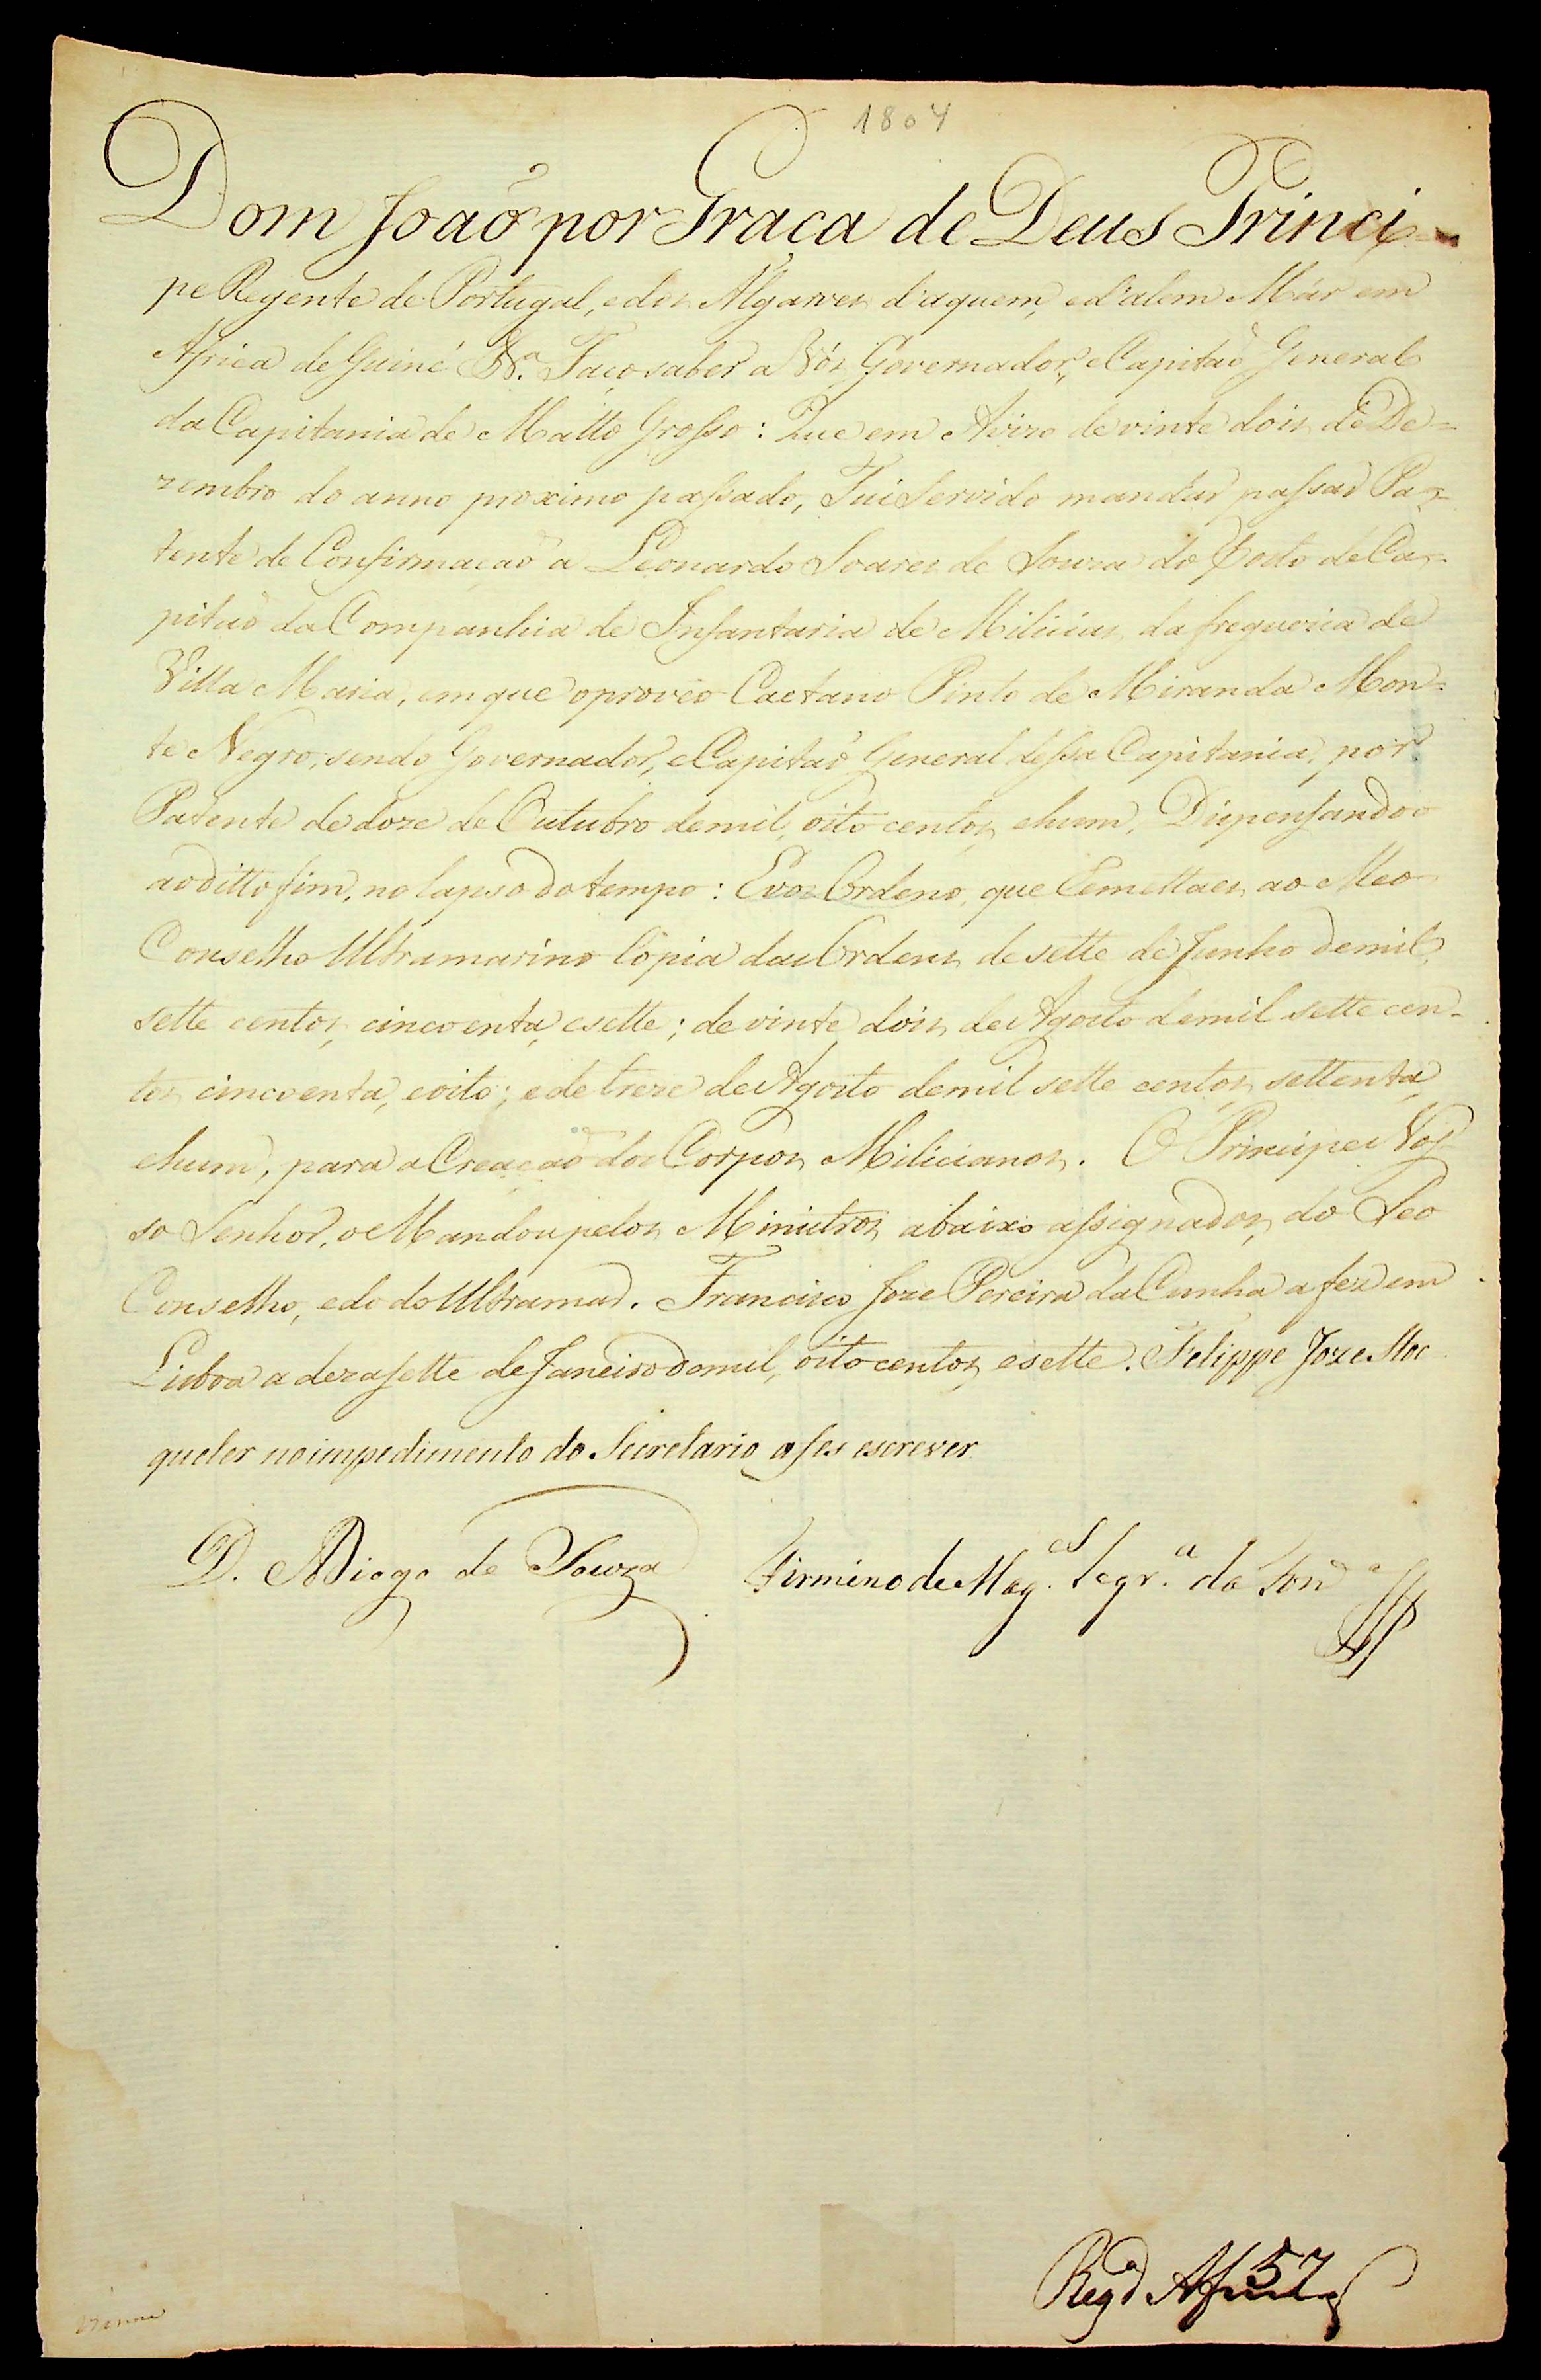 1804
Dom João por Graça de Deus Princi-
pe Regente de Portugal, e dos Algarves d'aquem, e d'alem Mar em
Africa de Guiné &.ª Faço saber a Vós Governador, e Capitaõ General
da Capitania de Matto Grosso: Que em Avizo de vinte dois de De=
zembro do anno proximo passado, Fui Servido mandar passar Pa=
tente de Confirmaçaõ a Leonardo Soares de Souza do Posto de Ca=
pitaõ da Companhia de Infantaria de Milicias da freguezia de
Villa Maria, em que o proveo Caetano Pinto de Miranda Mon=
te Negro, sendo Governador, e Capitaõ General dessa Capitania, por
Patente de doze de Outubro de mil, oito centos, e hum, Dispensando o
ao ditto fim, no lapso do tempo: E vos Ordeno, que Remettaes ao Meo
Conselho Ultramarino Copia das Ordens de sette de Junho de mil,
sette centos, cincoenta, e sette; de vinte dois de Agosto de mil sette cen-
tos cincoenta, e oito; e de treze de Agosto de mil sette centos settenta,
e hum, para a Creaçaõ dos Corpos Milicianos. O Principe Nos
so Senhor, o Mandou pelos Ministros abaixo assignados, do Seo
Conselho, e do do Ultramar. Francisco Joze Pereira da Cunha a fez em
Lisboa a dezasette de Janeiro de mil, oito centos, e sette. Felippe Joze Stoc
queler no impedimento do Secretario a fes escrever
D. Diogo de Souza Firmino de Mag.es Segr.ª da Fon.ª
Reg.d Af 57